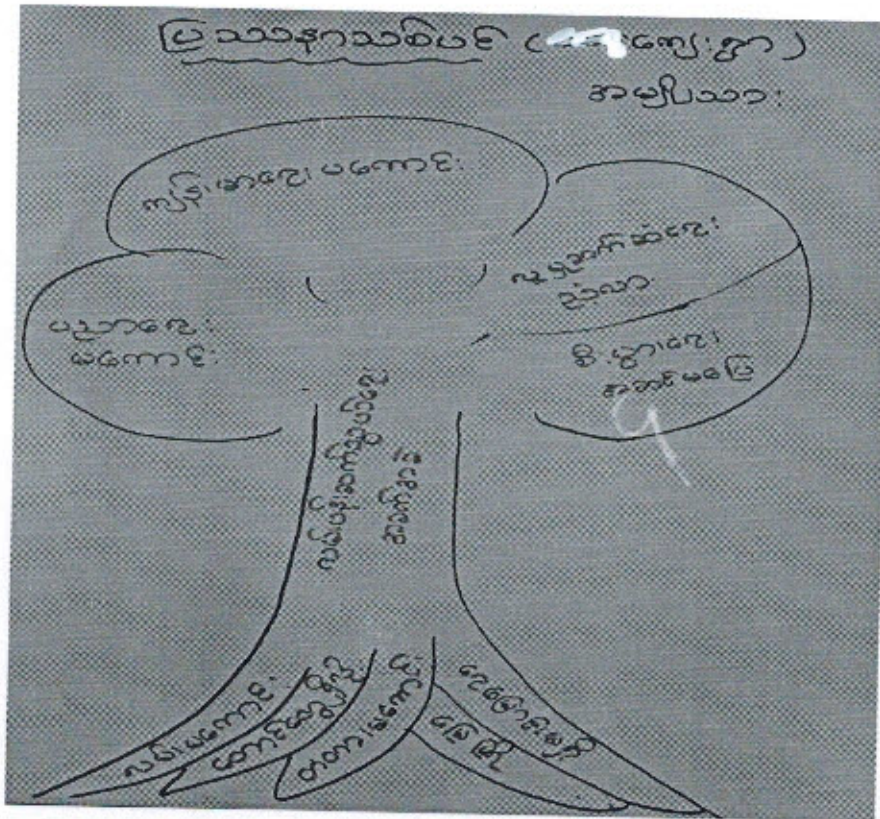 ပြဿနာသစ်ပင် (ကျေးရွာ)
အမျိုးသား
ကျန်းမာရေး မကောင်း
လူမှုဆက်ဆံရေး
ညံ့လာ
ပညာရေး
မကောင်း
စီးပွားရေး
အဆင်မပြေ
လမ်းပန်းဆက်သွယ်ရေး
အခက်အခဲ
လမ်းမကောင်း
တံတားမကောင်း
မြေပြို
ရေမြောင်းမရှိ